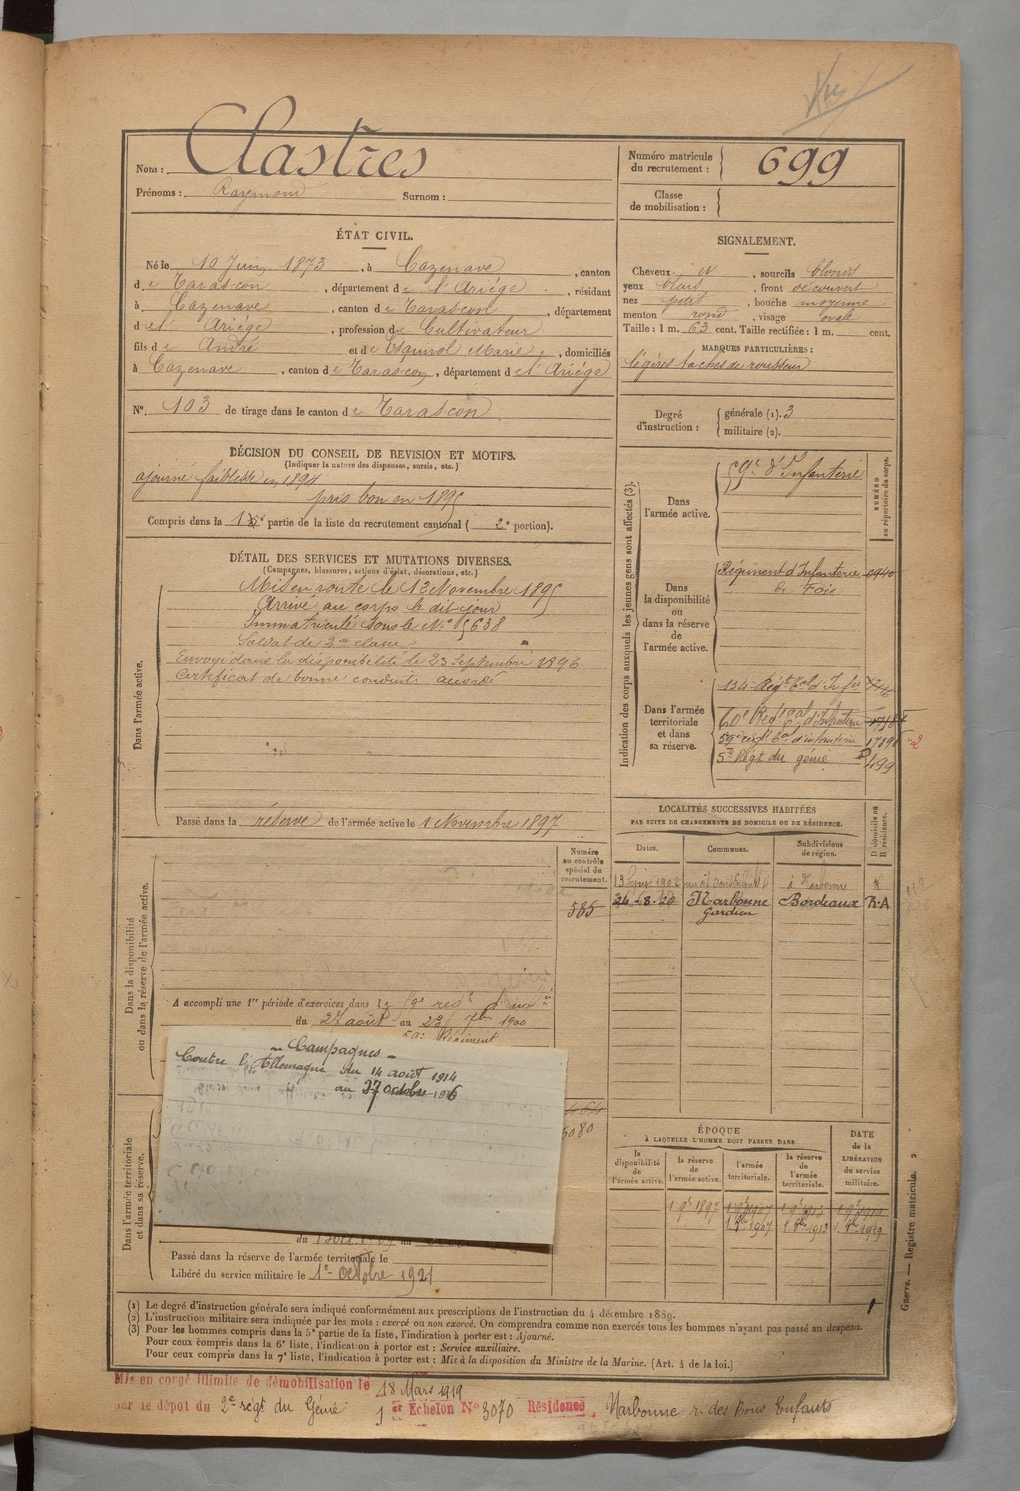 Nom : Clastres
Prénoms : Raymond Surnom :
Numéro matricule du recrutement : 699
Classe de mobilisation :
ÉTAT CIVIL.
Né le 10 Juin 1873, à Cazenave, canton
de Tarascon, département de l'Ariége, résidant
à Cazenave, canton de Tarascon, département
d el' Ariége, profession de Cultivateur
fils de André et de Esquirol Marie, domiciliés
à Cazenave, canton de Tarascon, département d el' Ariége
N°. 103 de tirage dans le canton de Tarascon
SIGNALEMENT.
Cheveux et, sourcils blonds
yeux bleus, front découvert
nez petit, bouche moyenne
menton rond, visage ovale
Taille : 1 m. 63 cent. Taille rectifiée : 1 m. cent.
MARQUES PARTICULIÈRES :
légères taches de rousseur
Degré d'instruction : générale (1). 3
militaire (2).
DÉCISION DU CONSEIL DE REVISION ET MOTIFS.
(Indiquer la nature des dispenses, sursis, etc.)
ajourné faiblesse en 1894
pris bon en 1895
Compris dans la partie de la liste du recrutement cantonal ( 2e portion).
DÉTAIL DES SERVICES ET MUTATIONS DIVERSES.
(Campagnes, blessures, actions d'éclat, décorations, etc.)
Dans l'armée active.
Mis en route le 12 Novembre 1895
Arrivé au corps le dit jour
Immatriculé sous le N° 5638
Soldat de 2me classe
Envoyé dans la disponibilité le 23 Septembre 1896
Certificat de bonne conduite accordé
Passé dans la réserve de l'armée active le 1 Novembre 1897
Indication des corps auxquels les jeunes gens sont affectés (3).
NUMÉRO au répertoire du corps.
Dans l'armée active.
59e d'Infanterie
Dans la disponibilité ou dans la réserve de l'armée active.
Régiment d'Infanterie 0940
de Foix
Dans l'armée territoriale et dans sa réserve.
134e Régt Eal d'Infie
60e Régt Eal d'Infanterie
59e régt Eal d'infanterie
5e Régt du génie
LOCALITÉS SUCCESSIVES HABITÉES
PAR SUITE DE CHANGEMENTS DE DOMICILE OU DE RÉSIDENCE.
Dates. Communes. Subdivisions de région. D domicile ou R résidence.
13 février 1902 à Narbonne R
24-8-20 Narbonne Bordeaux R.A
Gardien
Dans la disponibilité ou dans la réserve de l'armée active.
Numéro au contrôle spécial du recrutement.
585
A accompli une 1re période d'exercices dans le 59e regt d'inf
du 27 août au 23 7bre 1900
59e Régiment
Campagnes
Contre l'Allemagne du 14 août 1914
au 27 octobre 1916
5080
Dans l'armée territoriale et dans sa réserve.
Passé dans la réserve de l'armée territoriale le
Libéré du service militaire le 1er octobre 1921
ÉPOQUE
À LAQUELLE L'HOMME DOIT PASSER DANS
la disponibilité de l'armée active.
la réserve de l'armée active.
l'armée territoriale.
la réserve de l'armée territoriale.
DATE de la LIBÉRATION du service militaire.
1 9e 1897 1 9e 1907 1 9e 1913 1 9e 1919
Guerre. — Registre matricule. 2
(1) Le degré d'instruction générale sera indiqué conformément aux prescriptions de l'instruction du 4 décembre 1889.
(2) L'instruction militaire sera indiquée par les mots : exercé ou non exercé. On comprendra comme non exercés tous les hommes n'ayant pas passé au drapeau.
(3) Pour les hommes compris dans la 5e partie de la liste, l'indication à porter est : Ajourné.
Pour ceux compris dans la 6e liste, l'indication à porter est : Service auxiliaire.
Pour ceux compris dans la 7e liste, l'indication à porter est : Mis à la disposition du Ministre de la Marine. (Art. 4 de la loi.)
Mis en congé illimité de démobilisation le 18 Mars 1919
par le dépôt du 2e régt du Génie 1er Echelon N° 3070 Résidence Narbonne r. des Bons Enfants